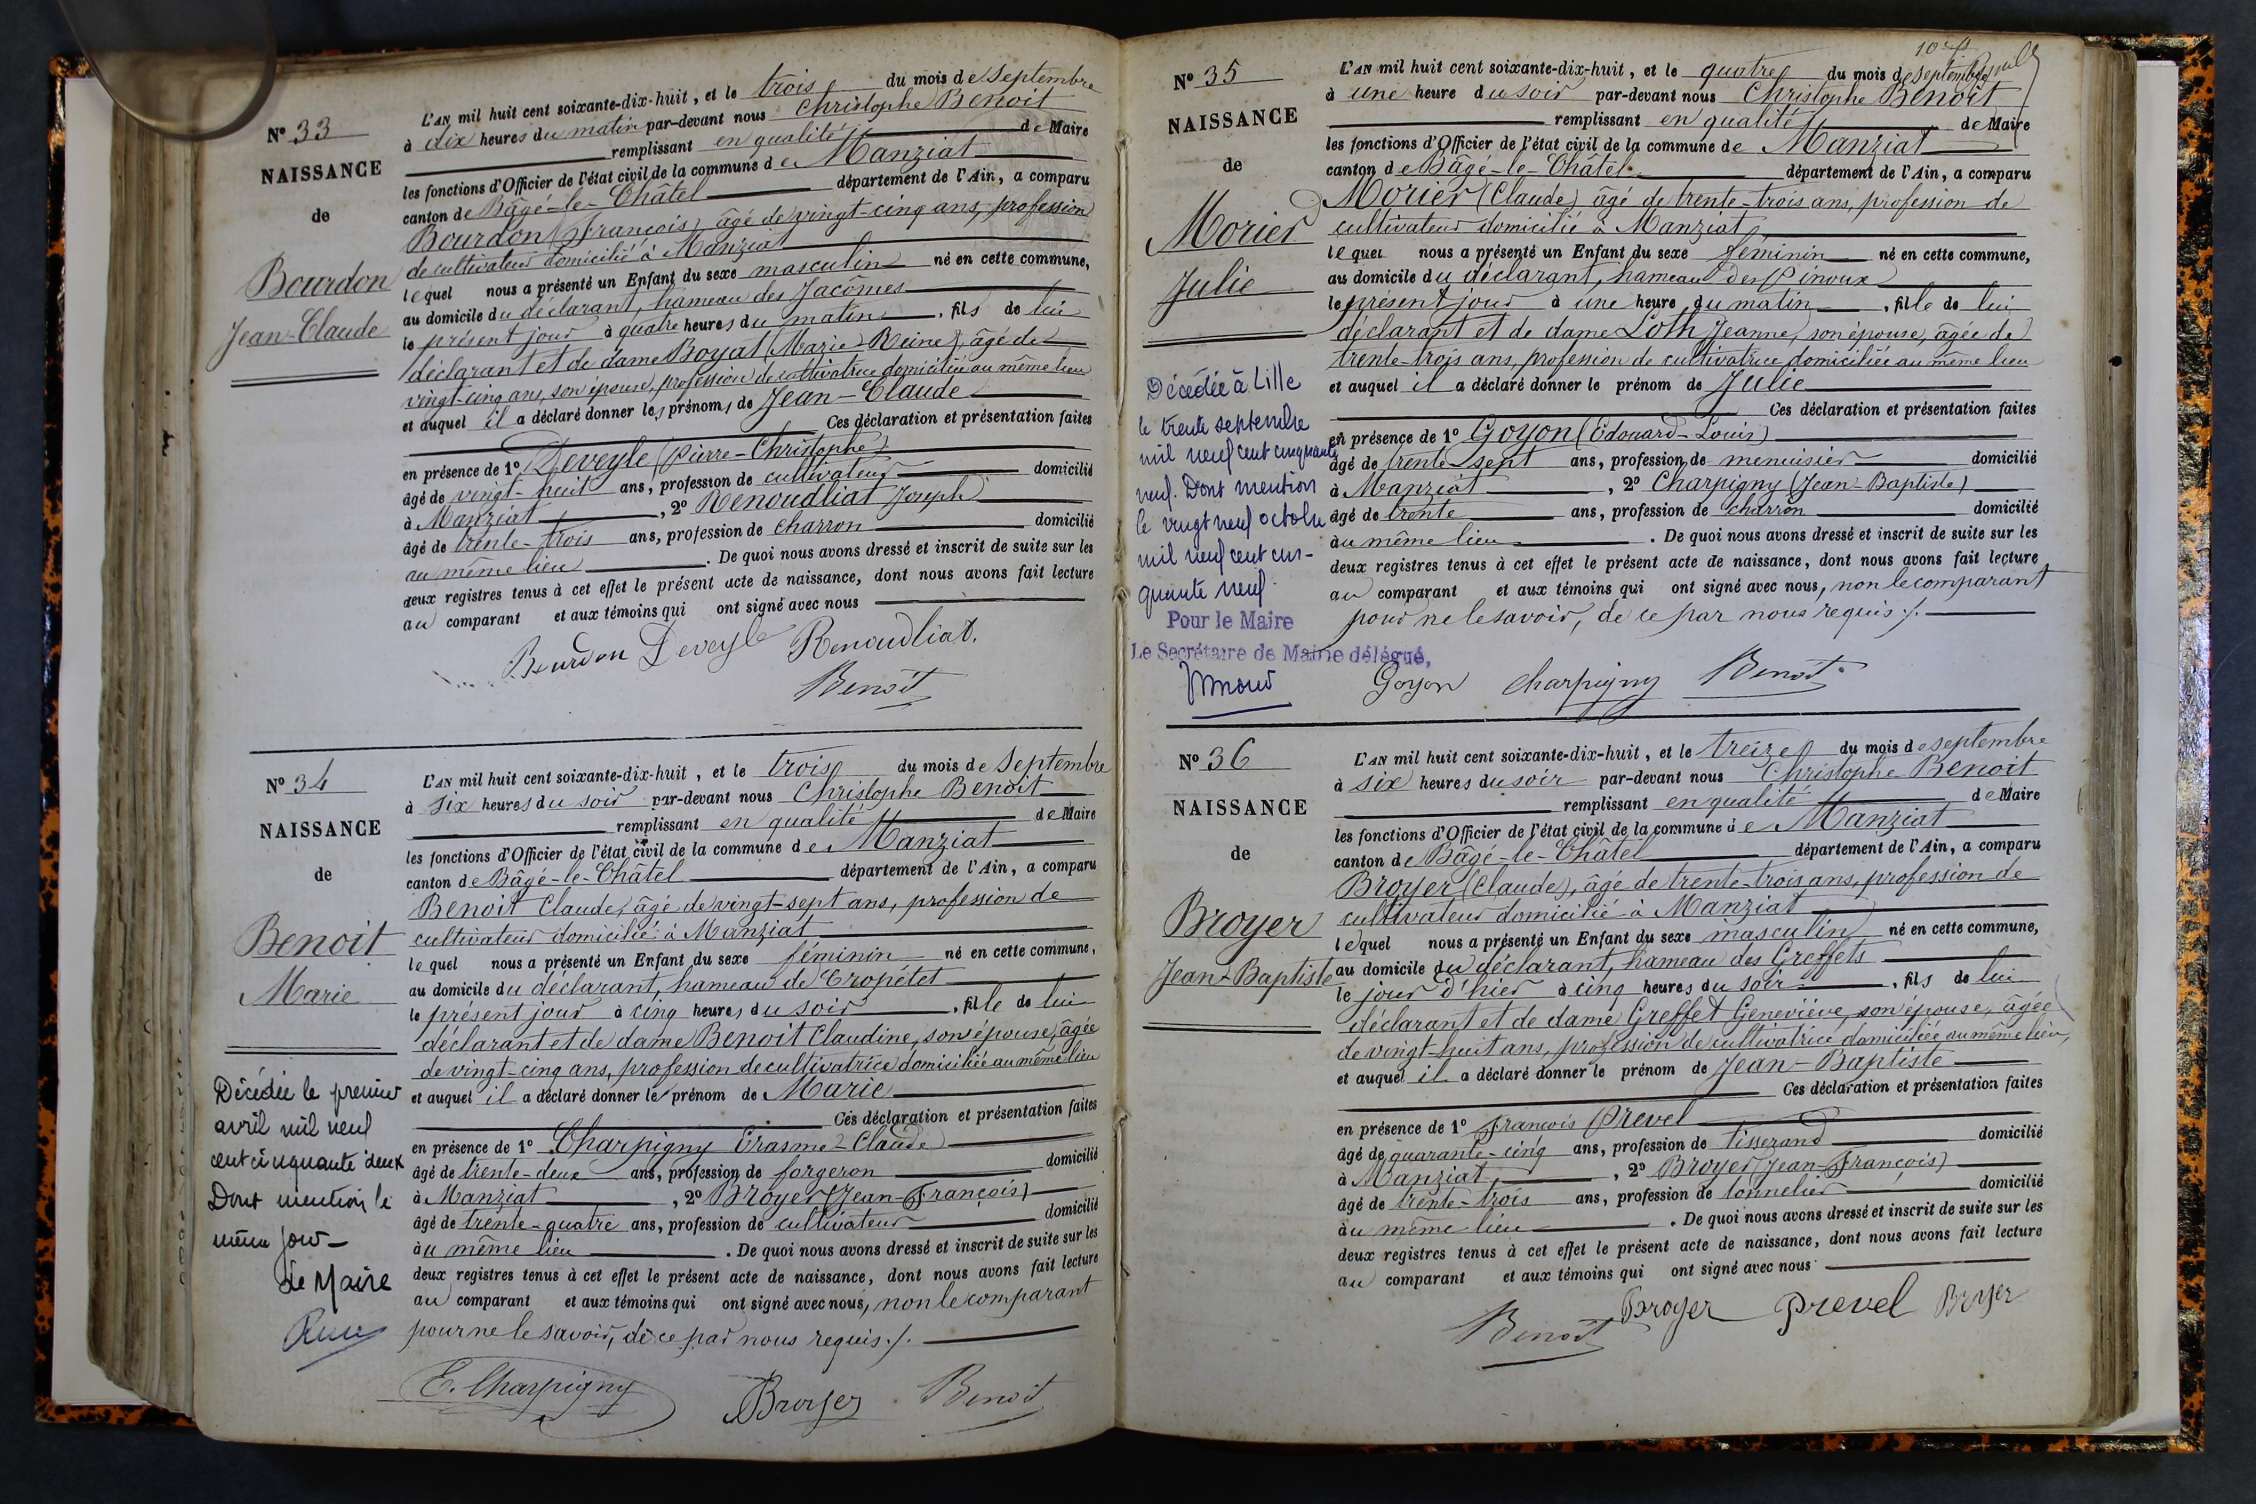 Nº 33
NAISSANCE
de
Bourdon
Jean-Claude
L'AN mil huit cent soixante-dix-huit, et le trois du mois de Septembre
à dix heures du matin par-devant nous Christophe Benoit
remplissant en qualité de Maire
les fonctions d'Officier de l'état civil de la commune de Manziat
canton de Bâgé-le-Châtel département de l'Ain, a comparu
Bourdon François, âgé de vingt-cinq ans, profession
de cultivateur domicilié à Manziat
lequel nous a présenté un Enfant du sexe masculin né en cette commune,
au domicile du déclarant, hameau des Jacômes
le présent jour à quatre heures du matin, fils de lui
déclarant et de dame Boyat (Marie-Reine), âgé de
vingt-cinq ans, son épouse, profession de cultivatrice domiciliée au même lieu
et auquel il a déclaré donner les prénoms de Jean-Claude
Ces déclaration et présentation faites
en présence de 1º Deveyle (Pierre-Christophe)
âgé de vingt-huit ans, profession de cultivateur domicilié
à Manziat, 2º Renoudliat Joseph
âgé de trente-trois ans, profession de charron domicilié
au même lieu. De quoi nous avons dressé et inscrit de suite sur les
deux registres tenus à cet effet le présent acte de naissance, dont nous avons fait lecture
au comparant et aux témoins qui ont signé avec nous
Bourdon Deveyle Renoudliat.
Benoit
Nº 34
NAISSANCE
de
Benoit
Marie
Décédée le premier
avril mil neuf
cent cinquante deux
Dont mention le
même jour
Le Maire
L'AN mil huit cent soixante-dix-huit, et le trois du mois de Septembre
à six heures du soir par-devant nous Christophe Benoit
remplissant en qualité de Maire
les fonctions d'Officier de l'état civil de la commune de Manziat
canton de Bâgé-le-Châtel département de l'Ain, a comparu
Benoit Claude, âgé de vingt-sept ans, profession de
cultivateur domicilié à Manziat
lequel nous a présenté un Enfant du sexe féminin né en cette commune,
au domicile du déclarant, hameau de Cropétet
le présent jour à cinq heures du soir, fille de lui
déclarant et de dame Benoit Claudine, son épouse, âgée
de vingt-cinq ans, profession de cultivatrice domiciliée au même lieu
et auquel il a déclaré donner le prénom de Marie
Ces déclaration et présentation faites
en présence de 1º Charpigny Erasme-Claude
âgé de trente-deux ans, profession de forgeron domicilié
à Manziat, 2º Broyer (Jean-François)
âgé de trente-quatre ans, profession de cultivateur domicilié
au même lieu. De quoi nous avons dressé et inscrit de suite sur les
deux registres tenus à cet effet le présent acte de naissance, dont nous avons fait lecture
au comparant et aux témoins qui ont signé avec nous, non le comparant
pour ne le savoir, de ce par nous requis ./.
E. Charpigny Broyer Benoit
10
Nº 35
NAISSANCE
de
Morier
Julie
Décédée à Lille
le trente septembre
mil neuf cent cinquante
neuf. Dont mention
le vingt neuf octobre
mil neuf cent cin-
quante neuf.
Pour le Maire
Le Secrétaire de Mairie délégué,
L'AN mil huit cent soixante-dix-huit, et le quatre du mois de Septembre
à une heure du soir par-devant nous Christophe Benoit
remplissant en qualité de Maire
les fonctions d'Officier de l'état civil de la commune de Manziat
canton de Bâgé-le-Châtel département de l'Ain, a comparu
Morier (Claude) âgé de trente-trois ans, profession de
cultivateur domicilié à Manziat
lequel nous a présenté un Enfant du sexe féminin né en cette commune,
au domicile du déclarant, hameau des Pinoux
le présent jour à une heure du matin, fille de lui
déclarant et de dame Loth Jeanne, son épouse, âgée de
trente-trois ans, profession de cultivatrice domiciliée au même lieu
et auquel il a déclaré donner le prénom de Julie
Ces déclaration et présentation faites
en présence de 1º Goyon (Edouard-Louis)
âgé de trente-sept ans, profession de menuisier domicilié
à Manziat, 2º Charpigny (Jean-Baptiste)
âgé de trente ans, profession de charron domicilié
au même lieu. De quoi nous avons dressé et inscrit de suite sur les
deux registres tenus à cet effet le présent acte de naissance, dont nous avons fait lecture
au comparant et aux témoins qui ont signé avec nous, non le comparant
pour ne le savoir, de ce par nous requis ./.
Goyon Charpigny Benoit
Nº 36
NAISSANCE
de
Broyer
Jean-Baptiste
L'AN mil huit cent soixante-dix-huit, et le treize du mois de Septembre
à six heures du soir par-devant nous Christophe Benoit
remplissant en qualité de Maire
les fonctions d'Officier de l'état civil de la commune de Manziat
canton de Bâgé-le-Châtel département de l'Ain, a comparu
Broyer (Claude), âgé de trente-trois ans, profession de
cultivateur domicilié à Manziat
lequel nous a présenté un Enfant du sexe masculin né en cette commune,
au domicile du déclarant, hameau des Greffets
le jour d'hier à cinq heures du soir, fils de lui
déclarant et de dame Greffet Geneviève, son épouse, âgée
de vingt-huit ans, profession de cultivatrice domiciliée au même lieu,
et auquel il a déclaré donner le prénom de Jean-Baptiste
Ces déclaration et présentation faites
en présence de 1º François Prevel
âgé de quarante-cinq ans, profession de tisserand domicilié
à Manziat, 2º Broyer (Jean-François)
âgé de trente-trois ans, profession de tonnelier domicilié
au même lieu. De quoi nous avons dressé et inscrit de suite sur les
deux registres tenus à cet effet le présent acte de naissance, dont nous avons fait lecture
au comparant et aux témoins qui ont signé avec nous
Broyer Prevel Broyer
Benoit